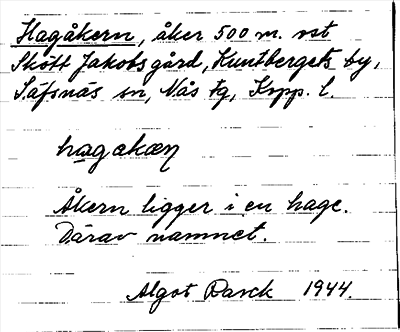 Hagåkern, åker 500 m. vst
Skött Jakobsgård, Huntbergets by,
Säfsnäs sn, Nås tg, Kopp. l.
hagakæɳ
Åkern ligger i en hage.
Därav namnet.
Algot Barck 1944.